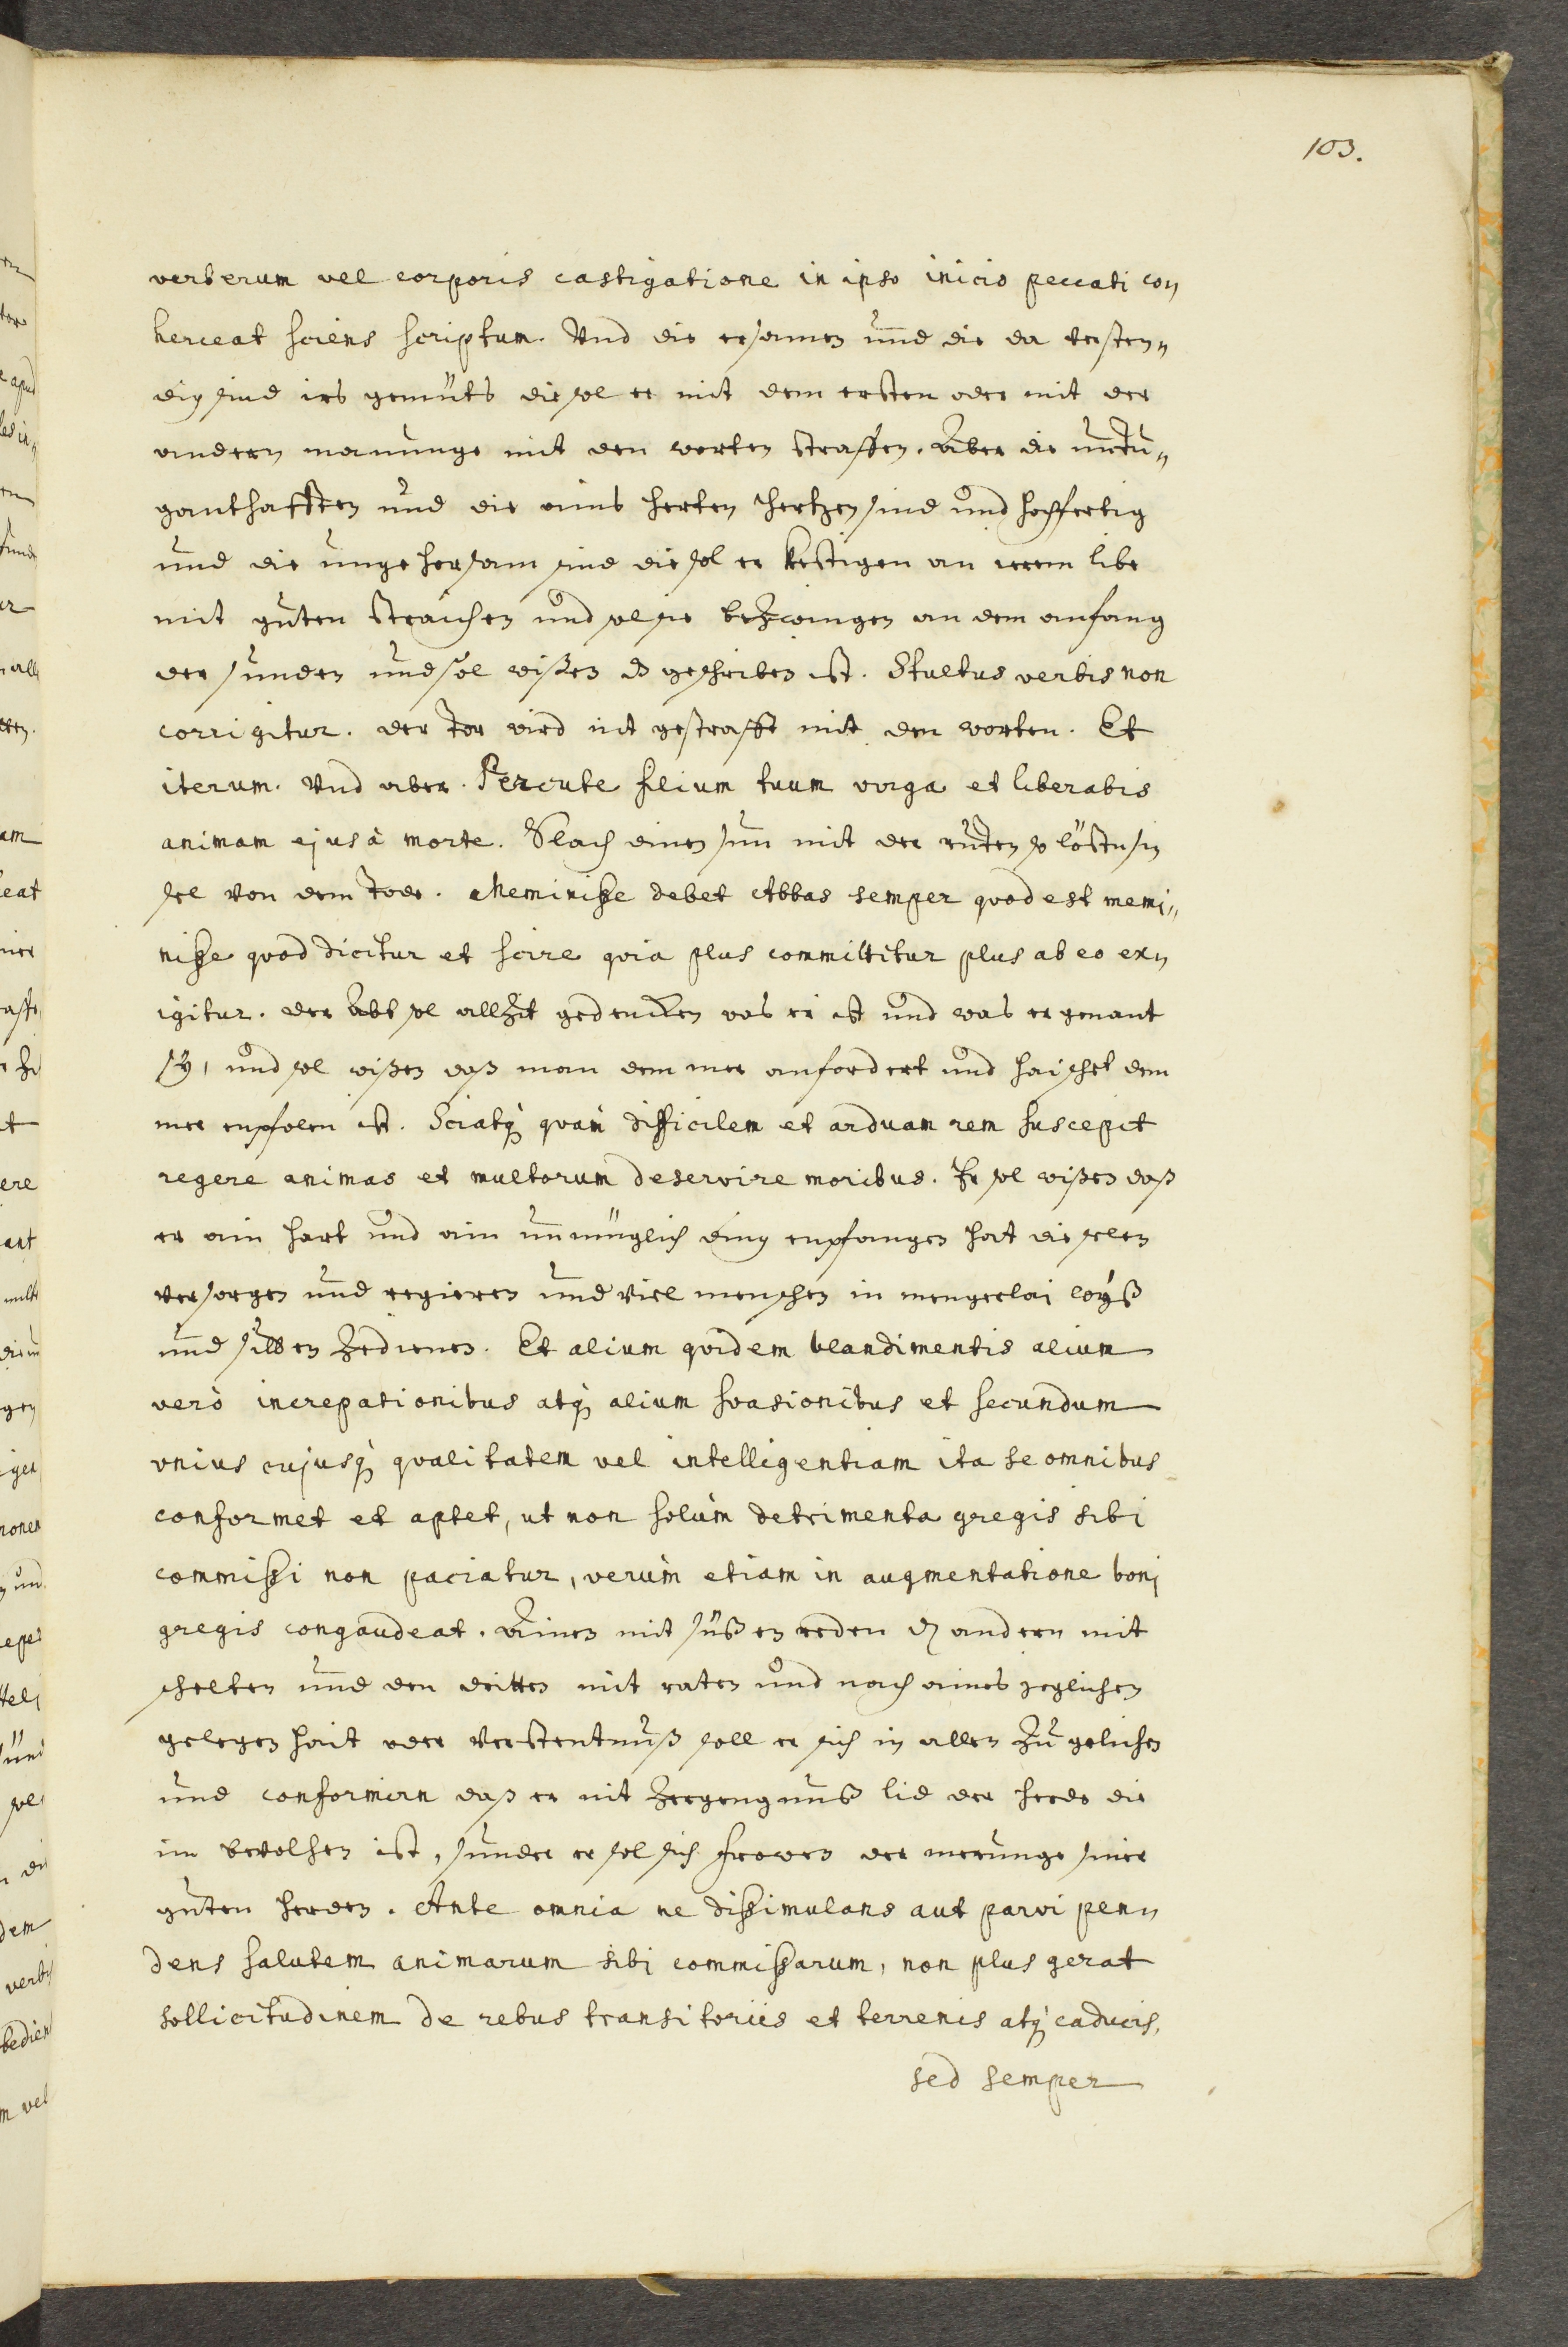 103.
verberum vel corporis castigatione in ipso inicio peccati con
herceat sciens scriptum. Vnd die ersamen und die da versten„
dig sind irs gemüts die sol er mit dem ersten oder mit der
andern manunge mit den worten straffen. Aber die untu„
ganthafften und die ains herten hertzen sind und hoffertig
und die ungehorsam sind die sol er kestigen an irem libe
mit guten straichen und sol sie bezwingen an dem anfang
der sunden und sol wißen dz geschriben ist. Stultus verbis non
corrigitur. der Tor wird nit gestrafft mit den worten. Et
iterum. Vnd aber. Percute filium tuum virga et liberabis
animam ejus à morte. Slach dinen sun mit der ruten so löstu sin
sel von dem Tode. Meminiße debet Abbas semper quod est memi„
niße quod dicitur et scire quia plus committitur plus ab eo ex„
igitur. der Abt sol allzit gedencken was er ist und was er genant
sÿ, und sol wißen daß man dem mer anfordert und haischet dem
mer enpfolen ist. Sciatq́ quàm difficilem et arduam rem suscepit
regere animas et multorum deservire moribus. Er sol wißen daß
er ain hart und ain unmüglich ding enpfangen hat die selen
versorgen und regieren und viel menschen in mengerlai woÿß
und sitten zedienen. Et alium quidem blandimentis alium
verò increpationibus atq́ alium suasionibus et secundum
vnius cujusq́ qualitatem vel intelligentiam ita se omnibus
conformet et aptet, ut non solùm detrimenta gregis sibi
commißi non paciatur, verùm etiam in augmentatione boni
gregis congaudeat. Ainen mit süßen reden dz andern mit
schelten und den dritten mit raten und nach aines jeglichen
gelegenhait oder verstentnuß soll er sich in allen zu gelichen
und conformirn daß er nit zergengnuß lid der herde die
im bevolhen ist, sunder er sol sich frowen der merunge siner
guten herden. Ante omnia ne dißimulans aut parvi pen„
dens salutem animarum sibi commißarum, non plus gerat
sollicitudinem de rebus transitoriis et terrenis atq́ caducis,
sed semper